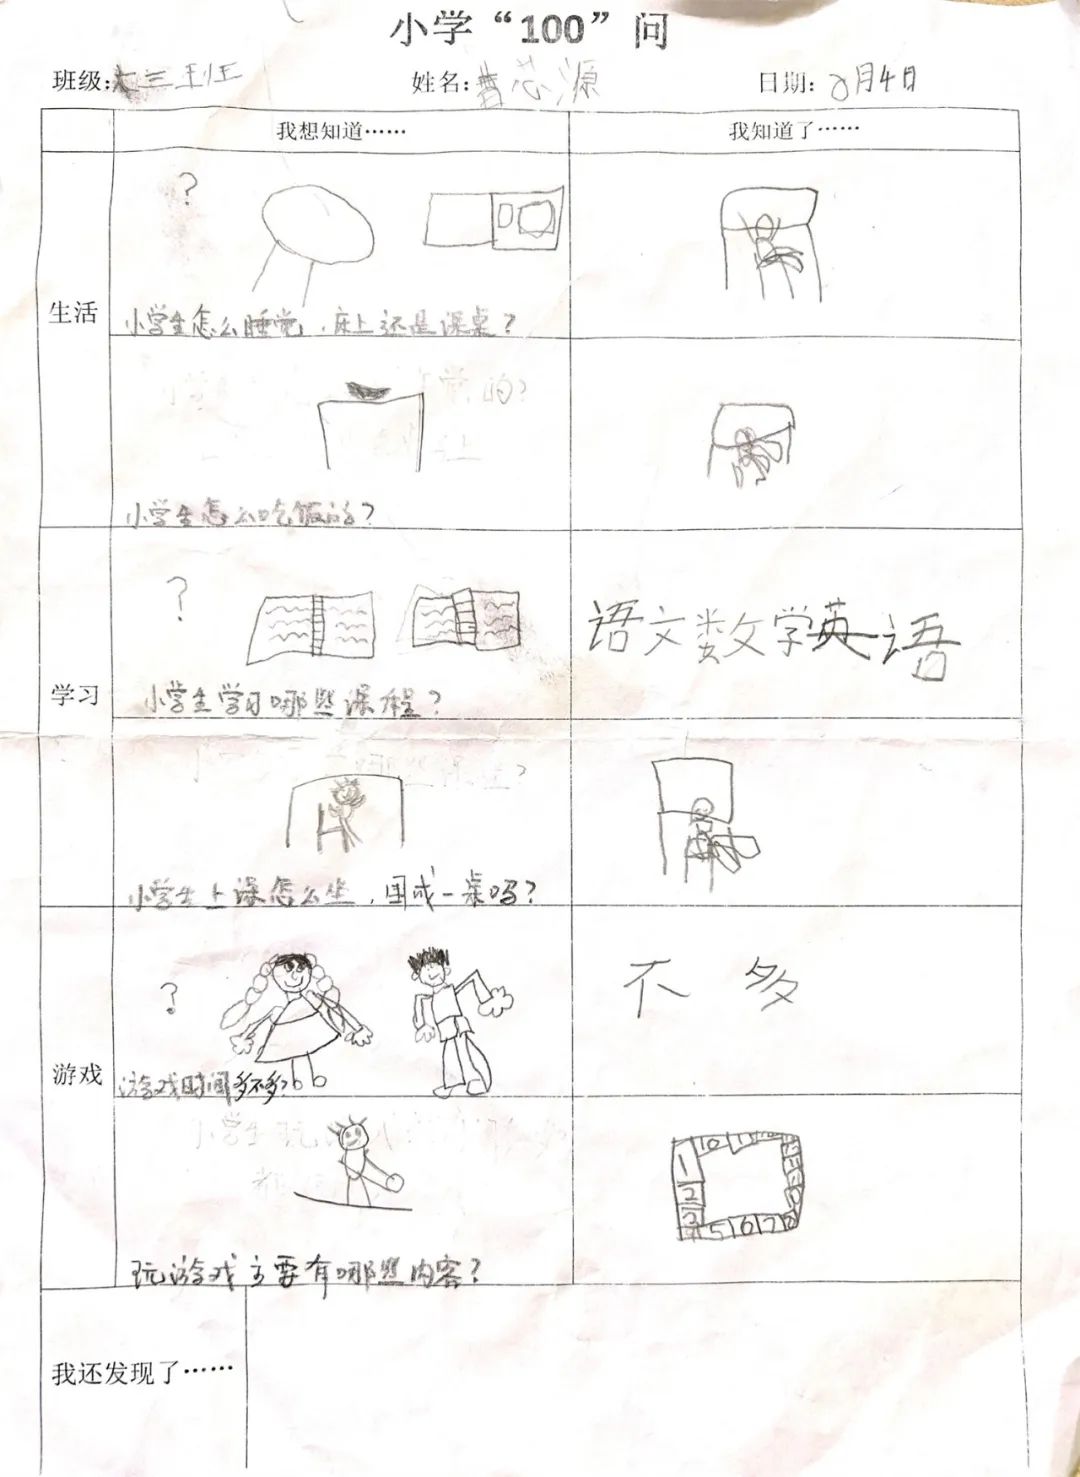 小学“100”问
班级：大三班 姓名：曹芯源 日期：6月4日
我想知道…… 我知道了……
生活
?
小学生怎么睡觉，床上还是课桌？
小学生怎么吃饭的？
学习
?
小学生学习哪些课程？
语文数学英语
小学生上课怎么坐，围成一桌吗？
游戏
?
游戏时间多不多？
不多
玩游戏主要有哪些内容？
1
2
3
5678
10 11
我还发现了……